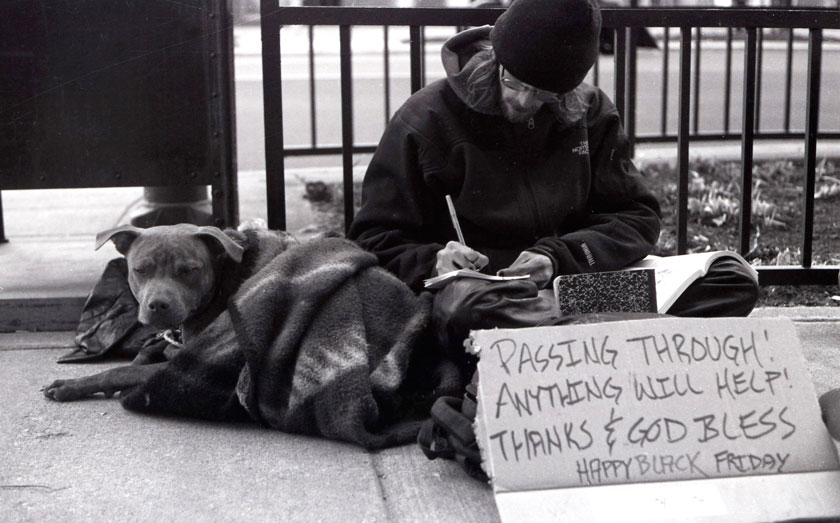 THE
NORTH
FACE
PASSING THROUGH!
ANYTHING WILL HELP!
THANKS & GOD BLESS
HAPPY BLACK FRIDAY